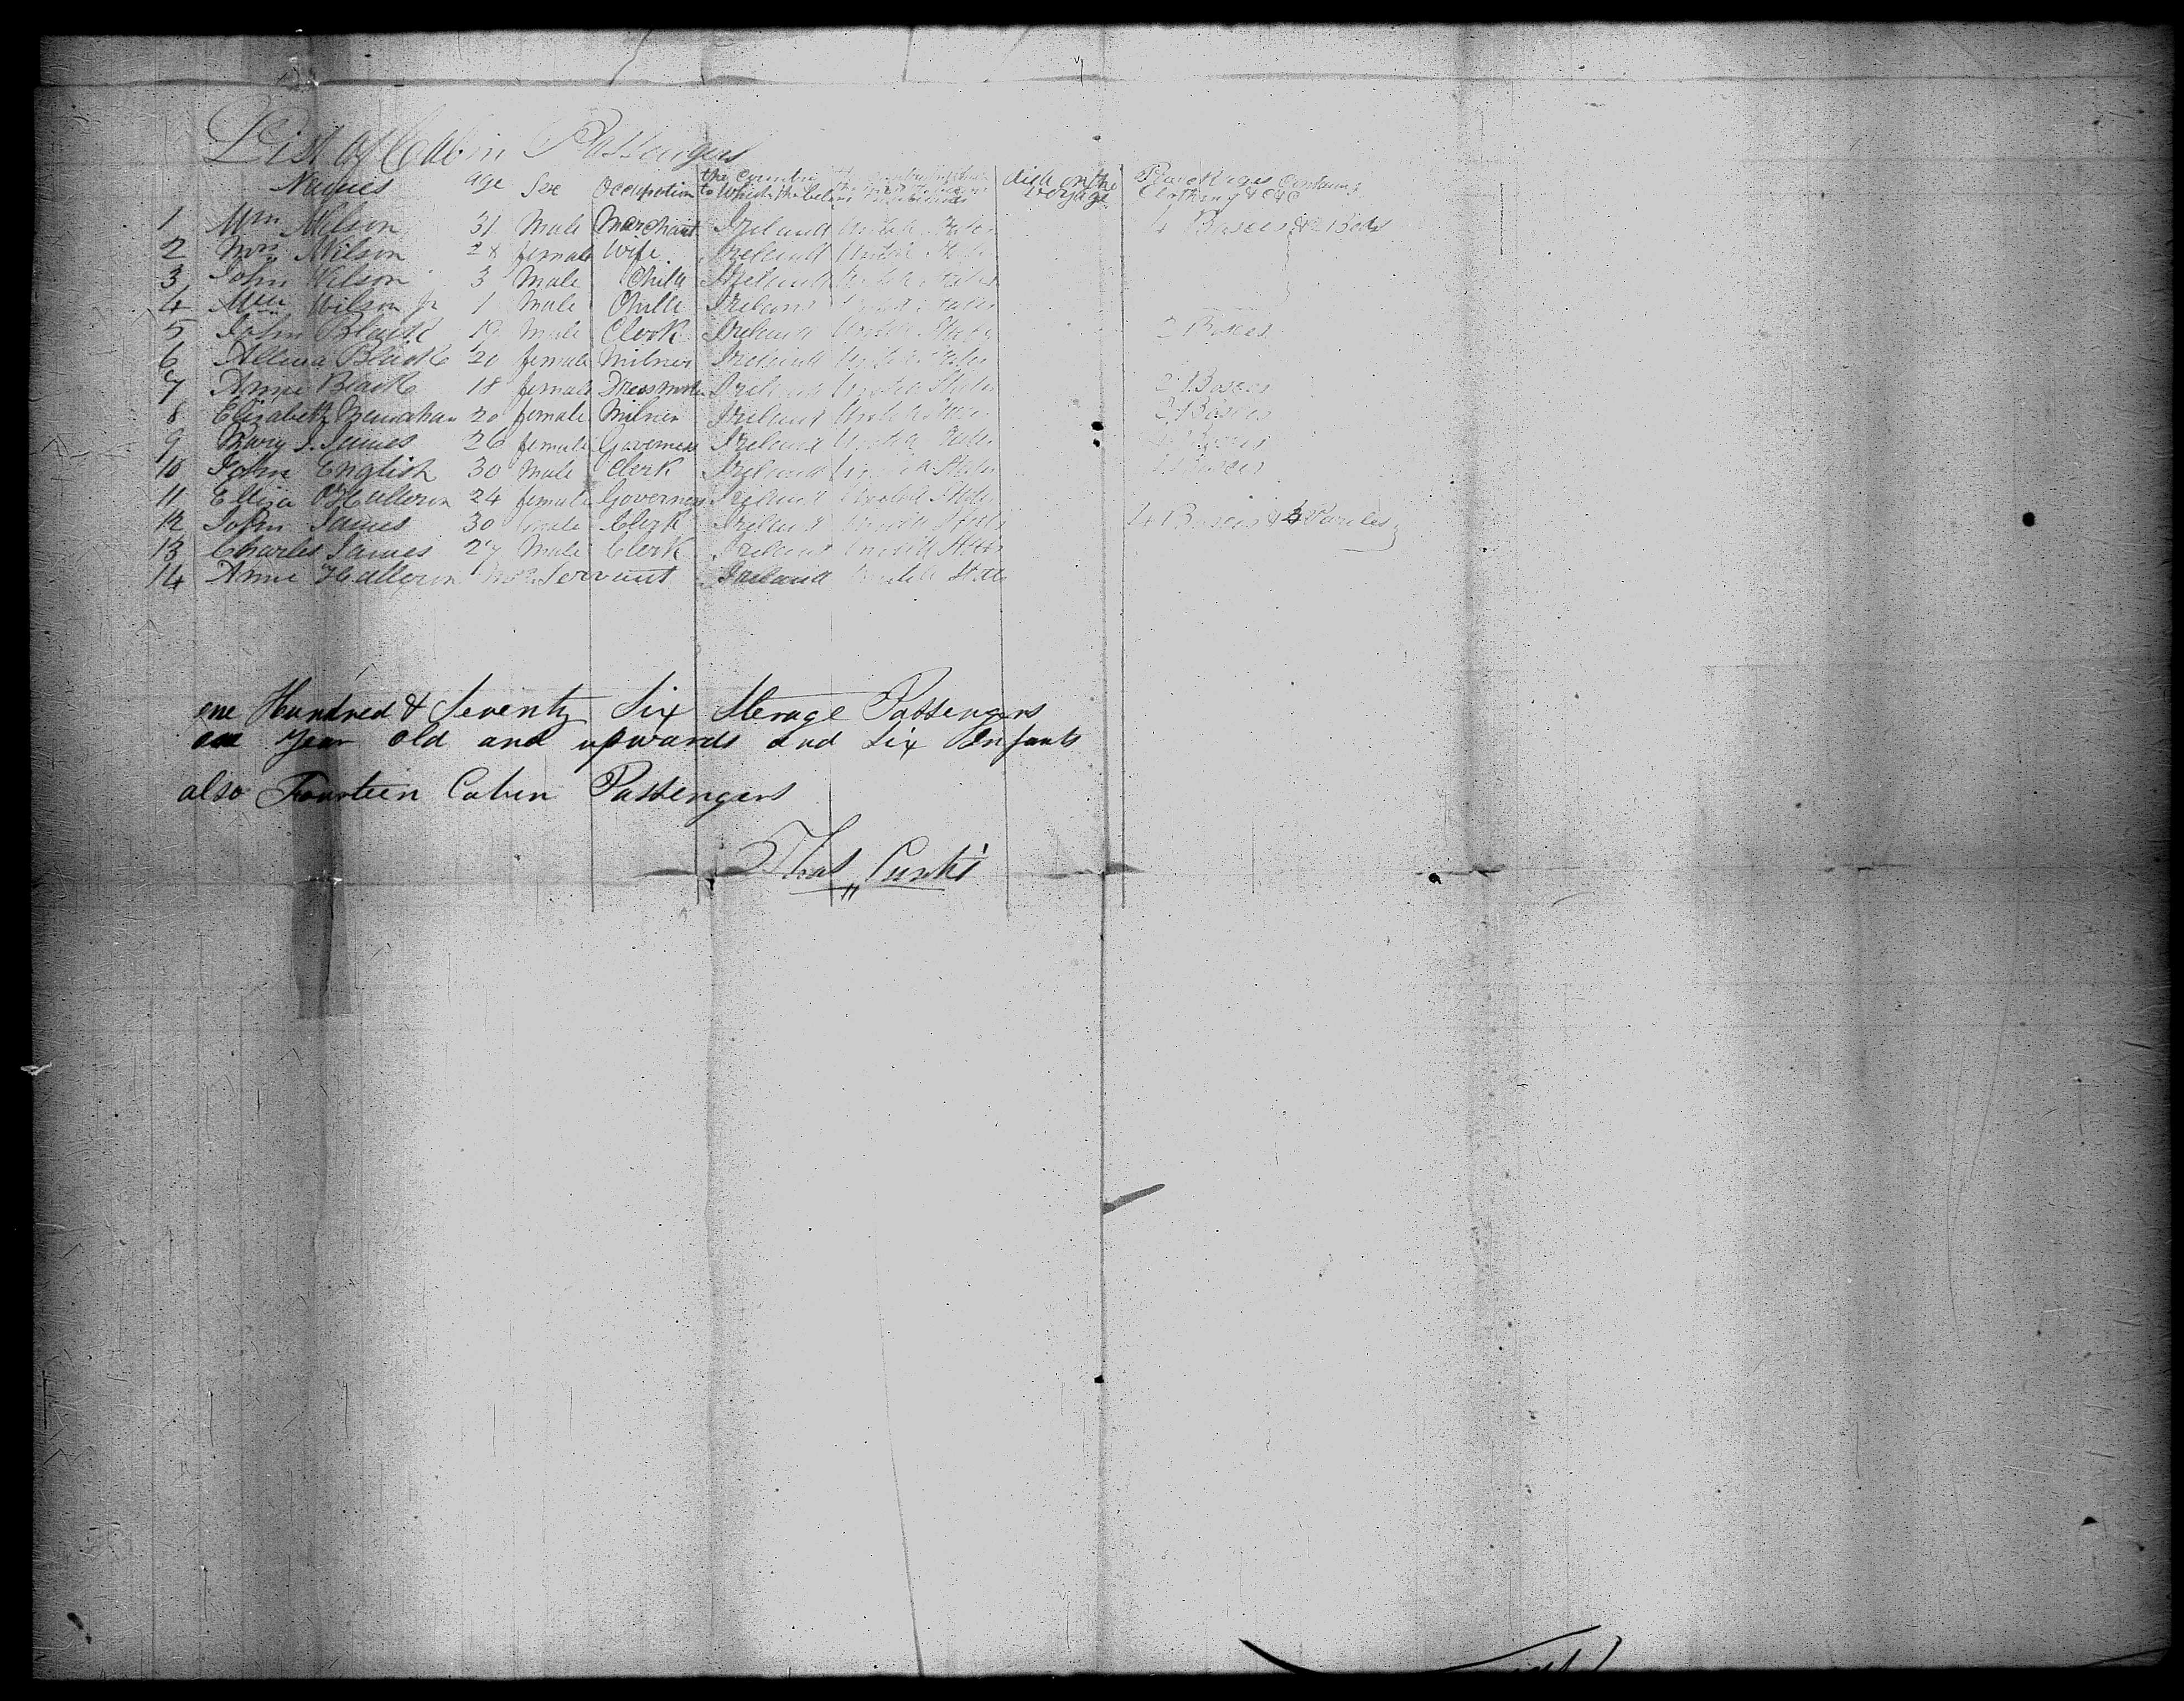 List of Cabin Passengers
Names age Sex Occupation the Country to which they belong died on the voyage Packages Containing Clothing &c &c
1 Wm Wilson 31 Male Merchant Ireland United States 4 Boxes & 2 Beds
2 Mrs Wilson 28 female Wife Ireland United States
3 John Wilson 3 Male Child Ireland United States
4 Wm Wilson Jr 1 Male Child Ireland United States
5 John Black 19 Male Clerk Ireland United States 2 Boxes
6 Black 20 female Milner Ireland United States
7 Anne Black 18 female Dressmaker Ireland United States 2 Boxes
8 Elizabeth 20 female Milner Ireland United States 2 Boxes
9 Mary J. James 26 female Governess Ireland United States Boxes
10 John English 30 Male Clerk Ireland United States Boxes
11 Eliza O'Halloran 24 female Governess Ireland United States
12 John James 30 Male Clerk Ireland United States Boxes &
13 Charles James 27 Male Clerk Ireland United States
14 Anne Servant Ireland United States
one Hundred & Seventy Six Sterage Passengers
one Year old and upwards and Six Infants
also Fourteen Cabin Passengers
Thos Curtis